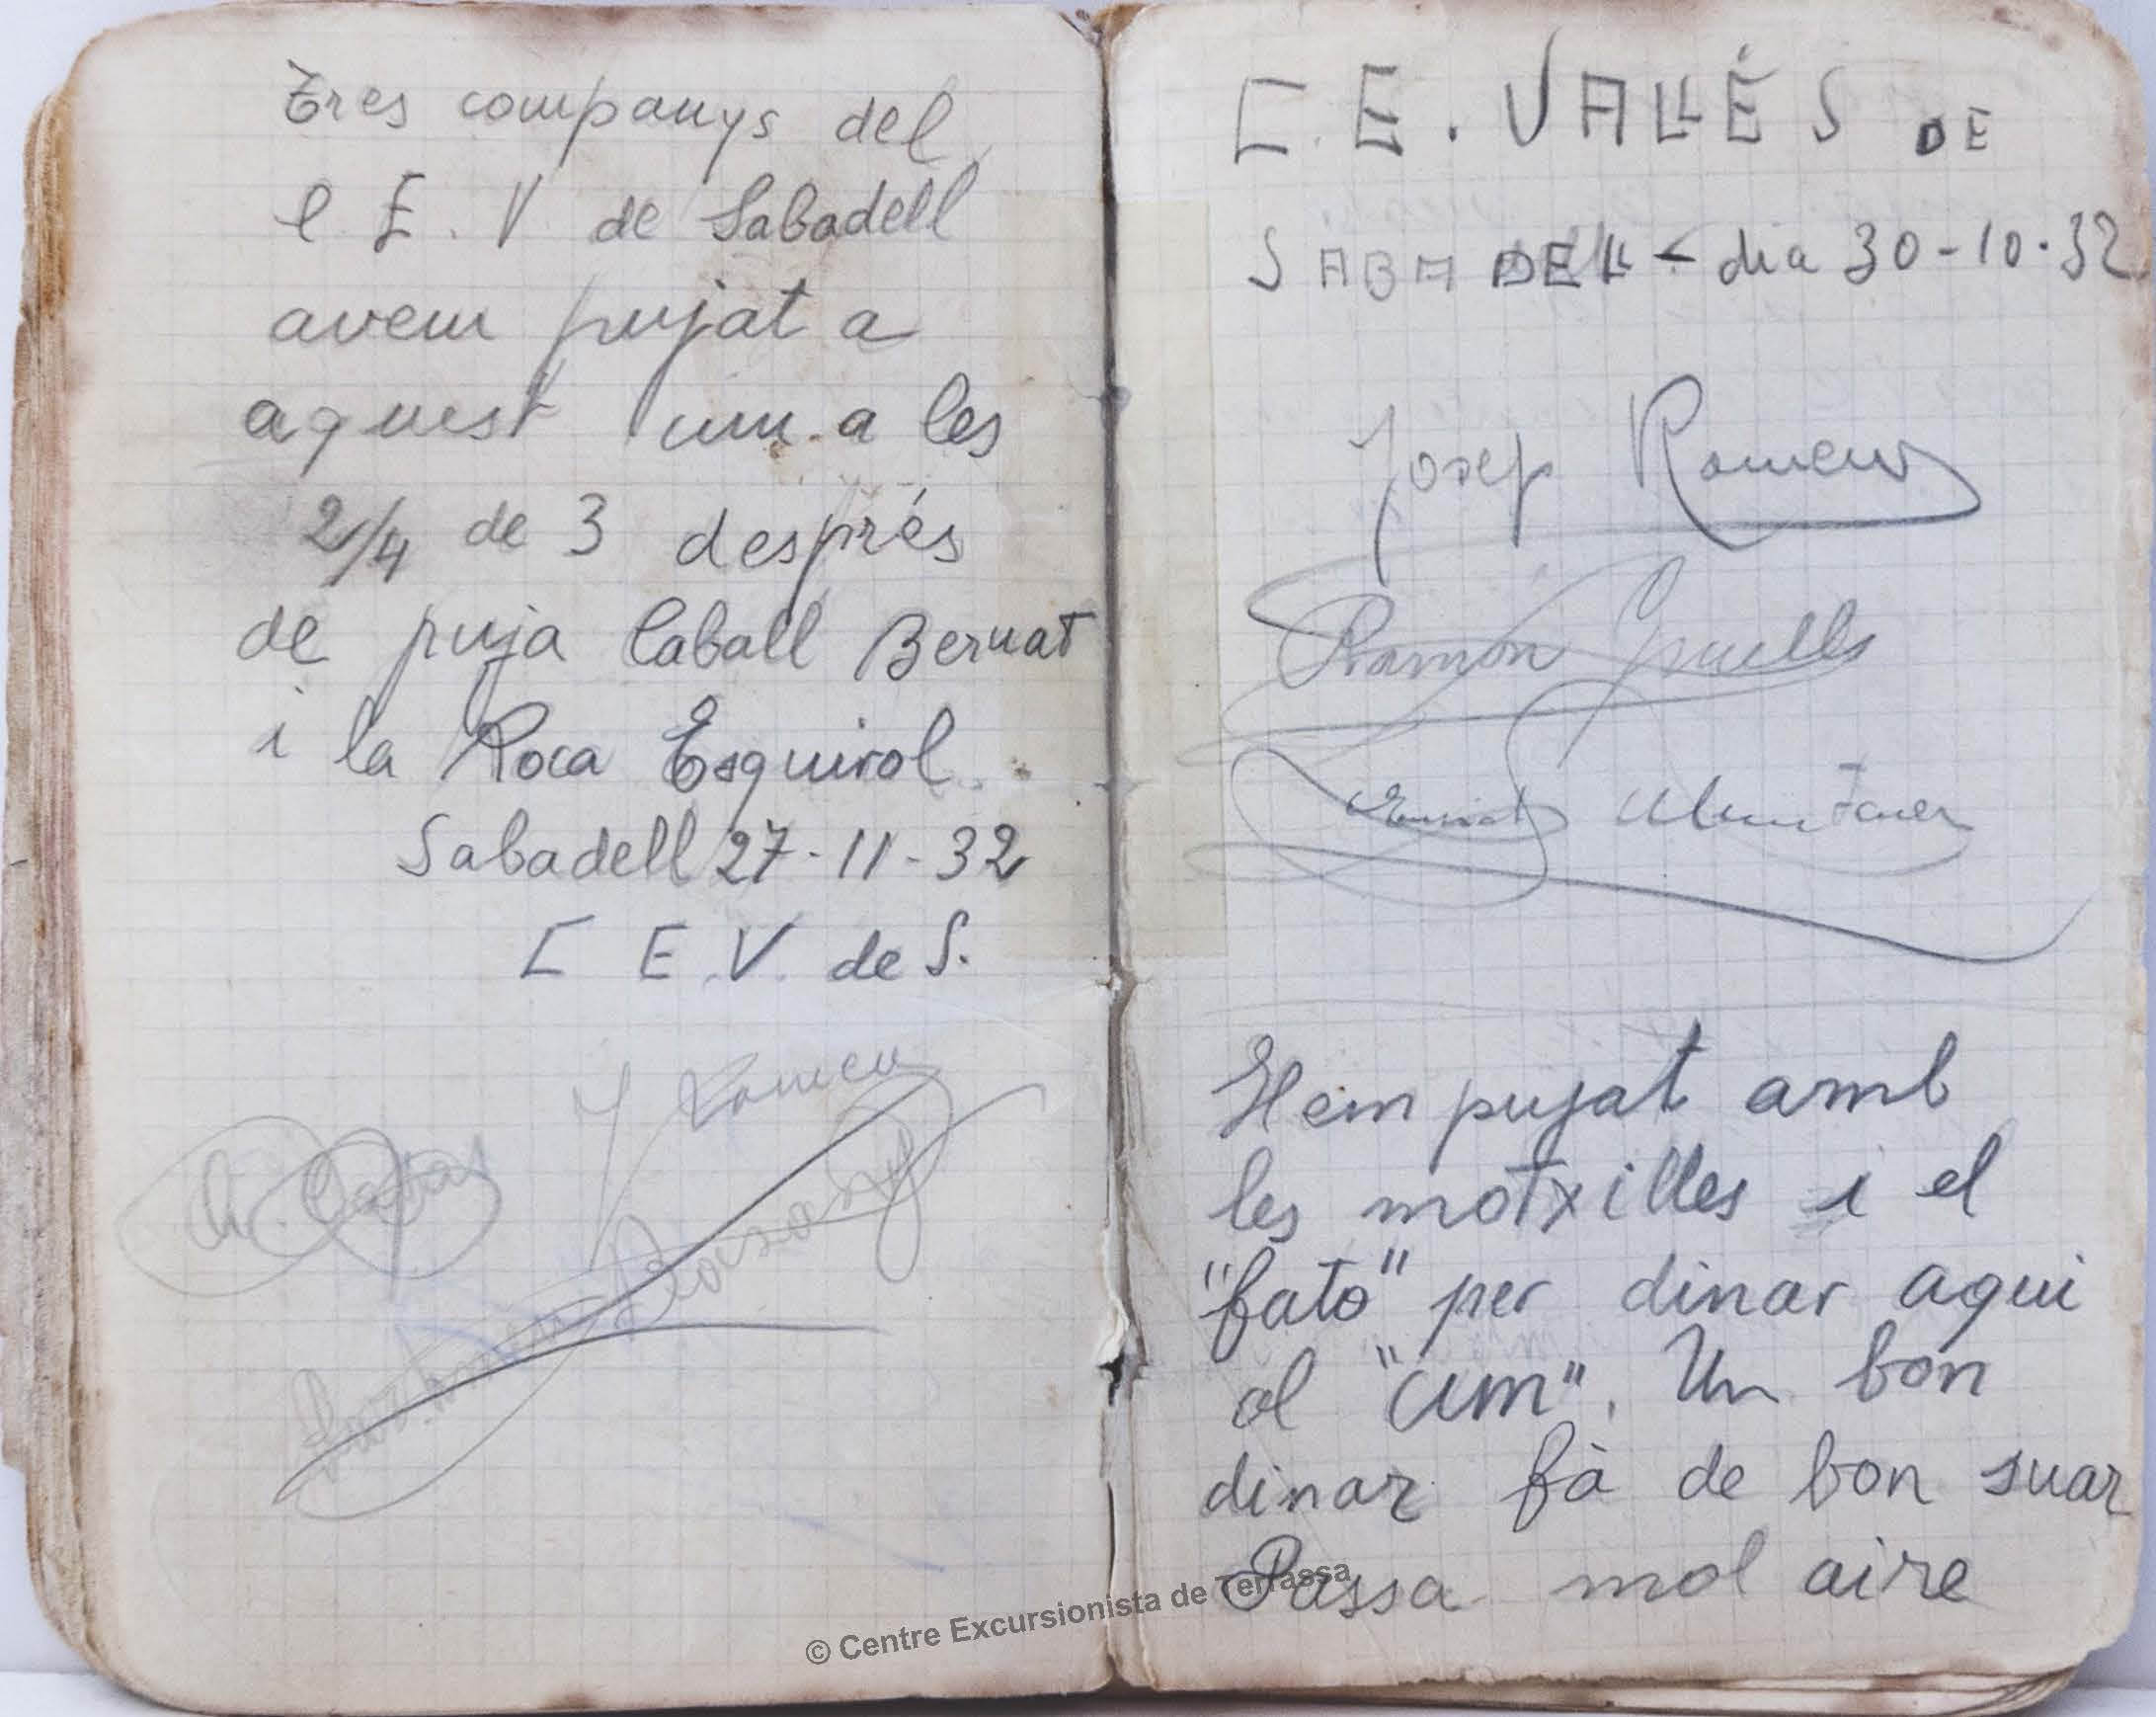 Tres companys del
C. E. V de Sabadell
avem pujat a
aquest cim a les
2/4 de 3 després
de puja Caball Bernat
i la Roca Esquirol.
Sabadell 27-11-32
C E.V. de S.
J Romeu
C. E. VALLÉS DE
SABADELL - dia 30-10-32
Josep Romeu
Ramón Gruells
Muntaner
Hem pujat amb
les motxilles i el
"fato" per dinar aqui
al "cim". Un bon
dinar fà de bon suar
Passa mol aire
© Centre Excursionista de Terrassa